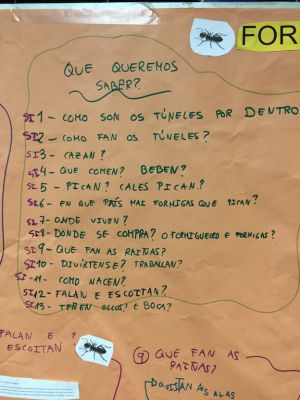 FOR
QUE QUEREMOS
SABER?
SI 1 - COMO SON OS TÚNELES POR DENTRO
SI 2 - COMO FAN OS TÚNELES?
SI 3 - CAZAN?
SI 4 - QUE COMEN? BEBEN?
SI 5 - PICAN? CALES PICAN?
SI 6 - EN QUE PAÍS HAI FORMIGAS QUE PICAN?
SI 7 - ONDE VIVEN?
SI 8 - DONDE SE COMPRA? O FORMIGUEIRO E FORMIGAS?
SI 9 - QUE FAN AS RAIÑAS?
SI 10 - DIVÍRTENSE? TRABALLAN?
SI - 11 - COMO NACEN?
SI 12 - FALAN E ESCOITAN?
SI 13 - TEÑEN OLLOS? E BOCA?
FALAN E ?
ESCOITAN
9 QUE FAN AS
RAIÑAS?
AS ALAS